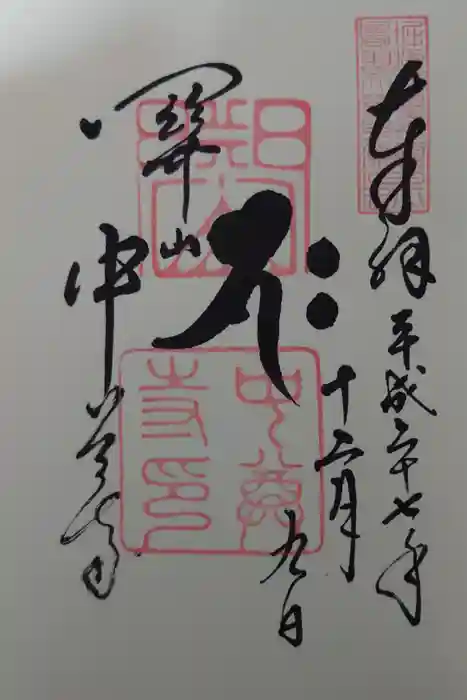 奉拝
平成二十七年
十二月
九日
關山
中尊寺
中尊
寺印